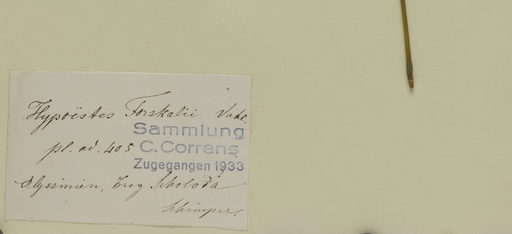 Hypoëstes Forskalii Vahl.
pl. ad. 405
Sammlung
C. Correns
Zugegangen 1933
Abyssinien, Berg Scholoda
Schimper.